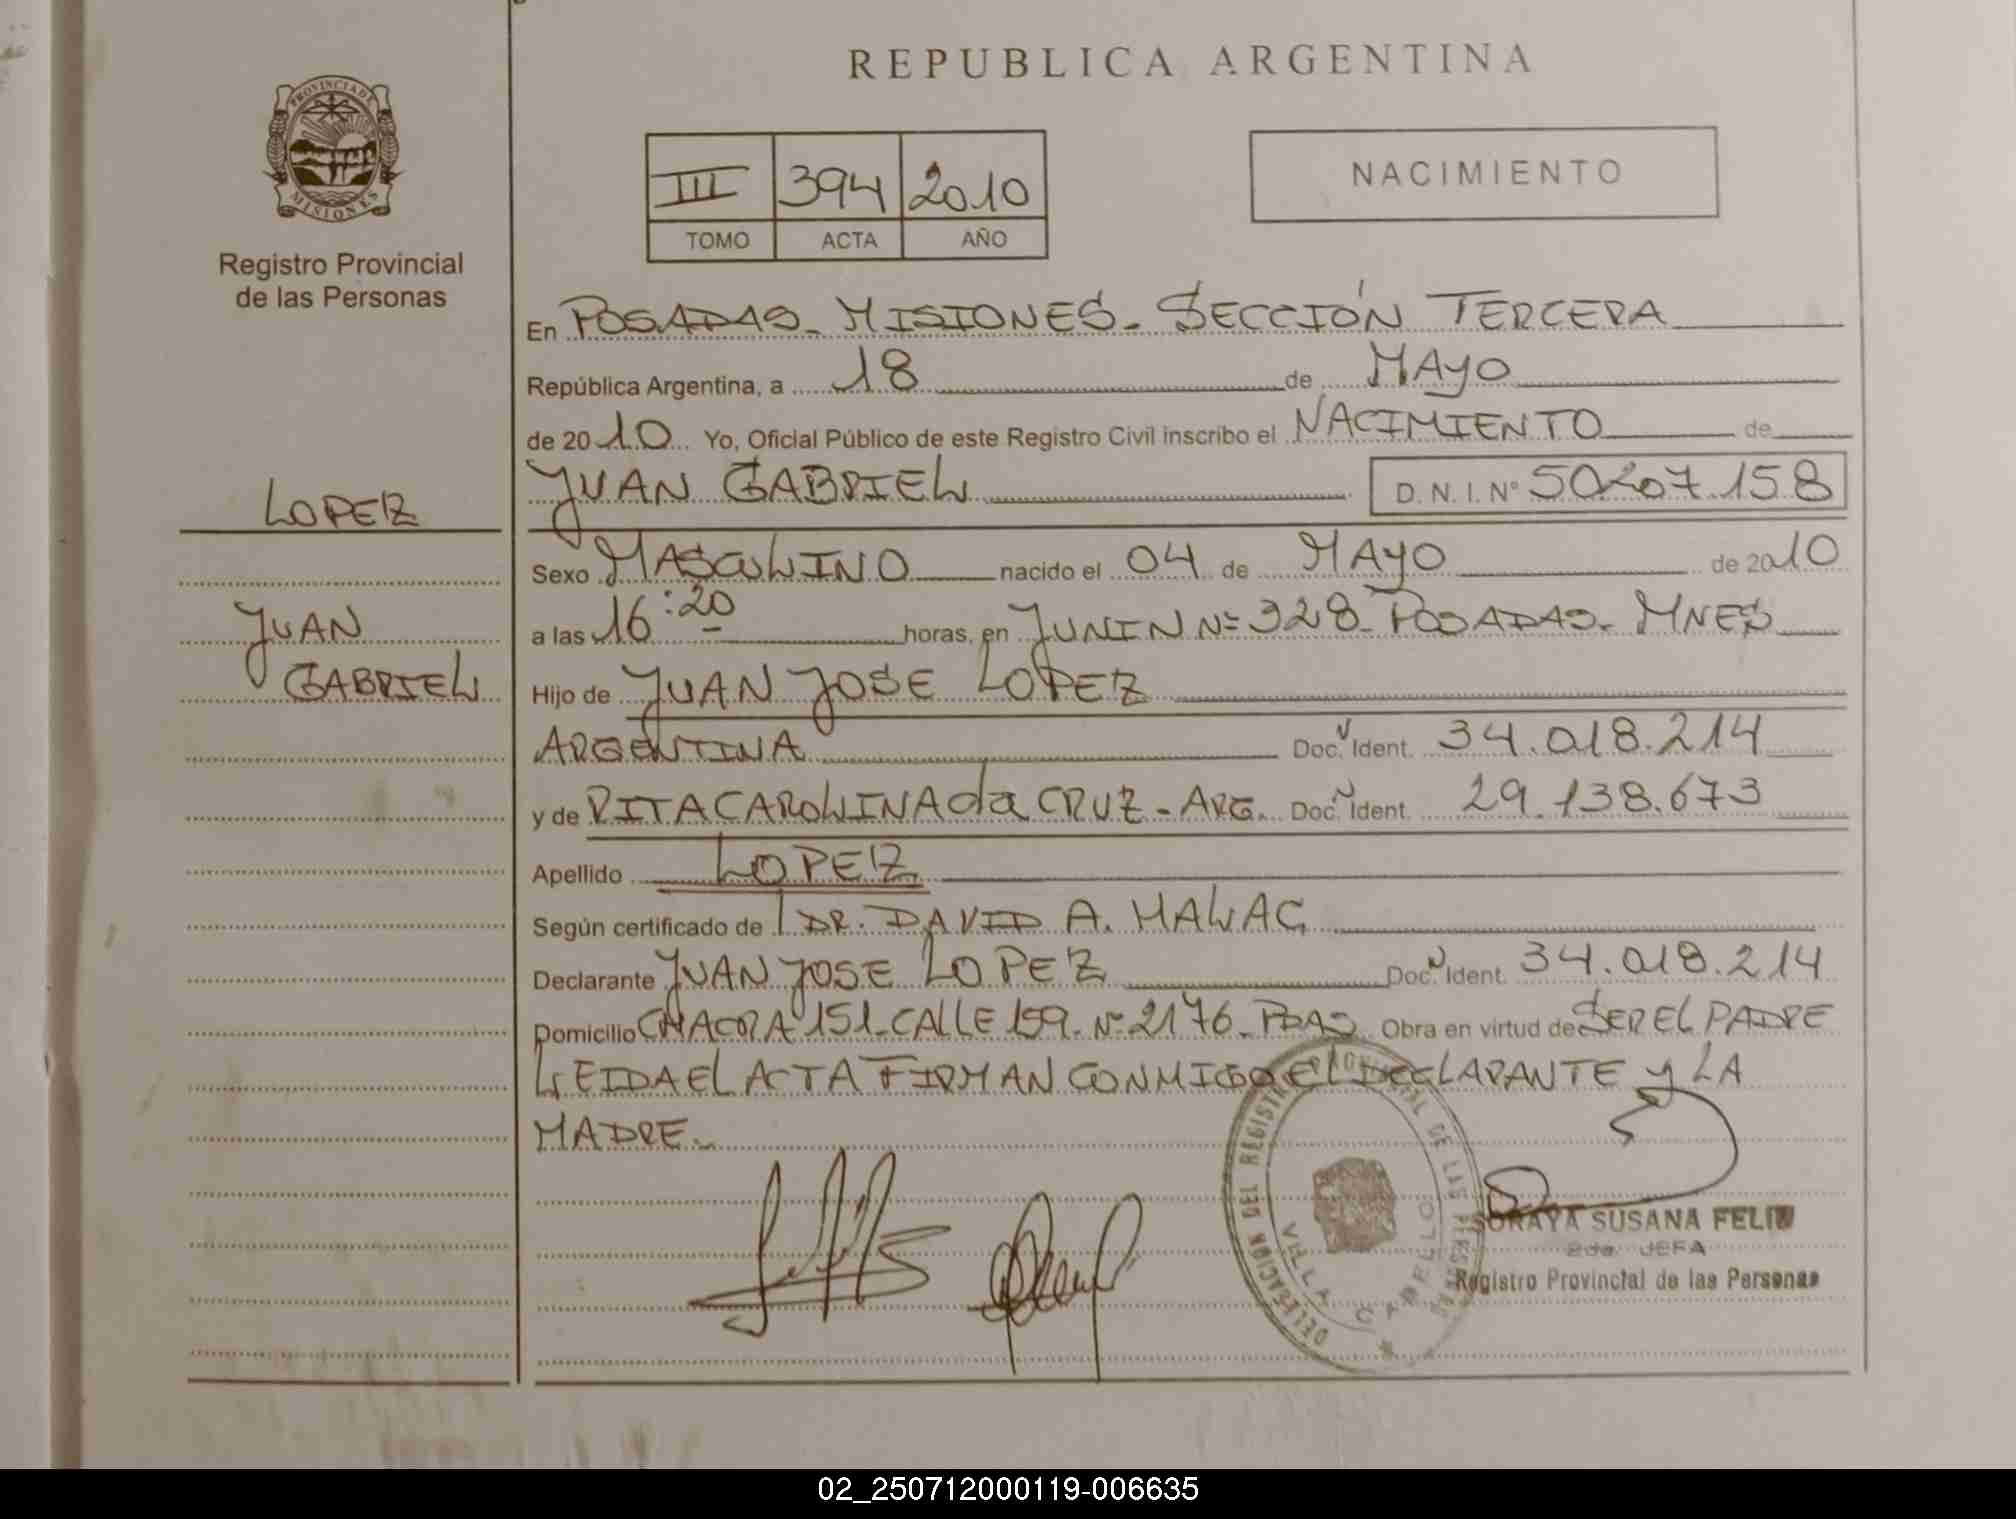 REPUBLICA ARGENTINA
PROVINCIA DE
MISIONES
Registro Provincial
de las Personas
III 394 2010
TOMO ACTA AÑO
NACIMIENTO
En POSADAS - MISIONES - SECCIÓN TERCERA
República Argentina, a 18 de MAYO
de 2010 Yo, Oficial Público de este Registro Civil inscribo el NACIMIENTO de
JUAN GABRIEL D. N. I. Nº 50207.158
LOPEZ
Sexo MASCULINO nacido el 04 de MAYO de 2010
JUAN
a las 16:20 horas, en JUNIN Nº 328 - POSADAS - MNES
GABRIEL
Hijo de JUAN JOSE LOPEZ
ARGENTINA Doc. Ident. 34.018.214
y de RITA CAROLINA da CRUZ - ARG. Doc. Ident. 29.138.673
Apellido LOPEZ
Según certificado de DR. DAVID A. MALAC
Declarante JUAN JOSE LOPEZ Doc. Ident. 34.018.214
Domicilio CHACRA 151 - CALLE 159 - Nº 2176 - PDAS Obra en virtud de SER EL PADRE
LEIDA EL ACTA FIRMAN CONMIGO EL DECLARANTE Y LA
MADRE.
DELEGACION DEL REGISTRO PROVINCIAL DE LAS PERSONAS
VILLA CABELLO
SORAYA SUSANA FELIU
2da. JEFA
Registro Provincial de las Personas
02_250712000119-006635